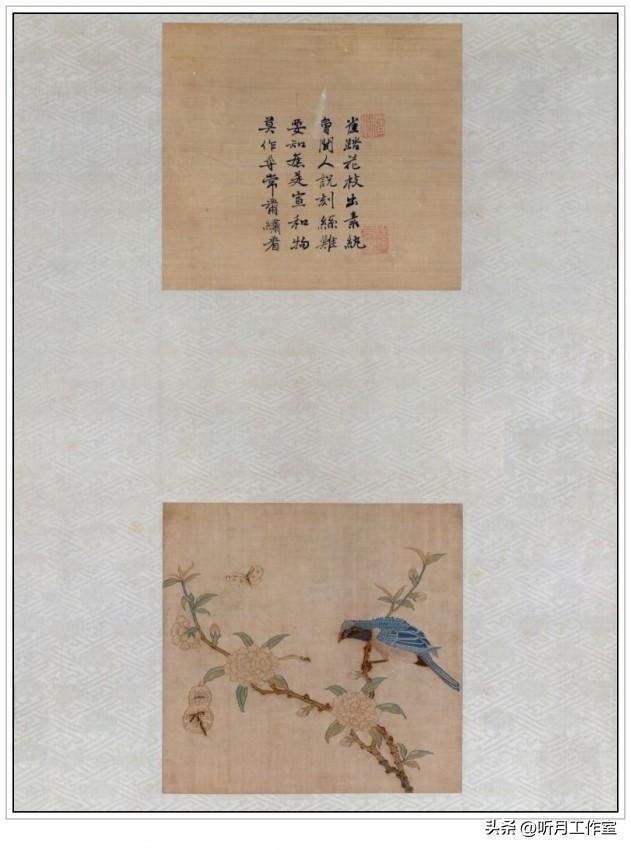 雀踏花枝出素紈
曾聞人說刻絲難
要知應是宣和物
莫作尋常黹繡看
头条 @听月工作室